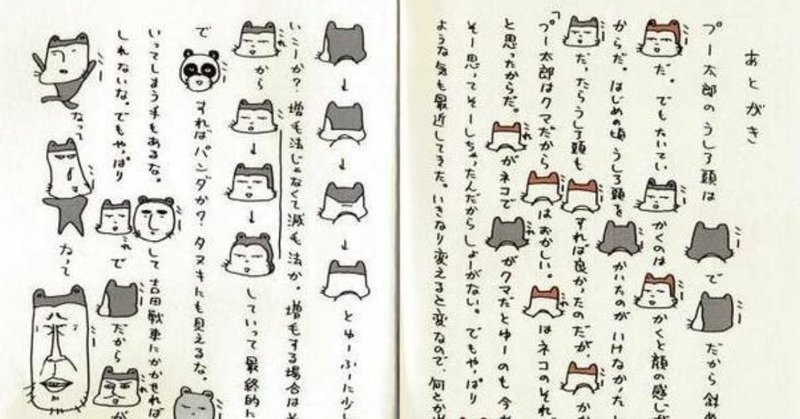 あとがき
プー太郎のうしろ頭は で だから斜
だ。でもたいてい かくのは かくと顔の感じが
からだ。はじめの頃うしろ頭を かいたのがいけなかった。
だ、たらうしろ頭も すれば良かったのだが、
「プー太郎はクマだから はおかしい。 はネコのそれ
と思ったからだ。 がネコで がクマだとゆーのも今
そー思ってそーしちゃったんだからしょーがない。でもやっぱり
ような気も最近してきた。いきなり変えると変なので、何とか
↓ ↓ ↓ とゆーふーに少し
いこーか?増毛法じゃなくて減毛法か。増毛する場合はそ
から ↓ ↓ していって最終的に
で すればパンダか?タヌキにも見えるな。
いってしまう手もあるな。 して吉田戦車にかかせれば
しれないな。でもやっぱり で だから が
なって なって